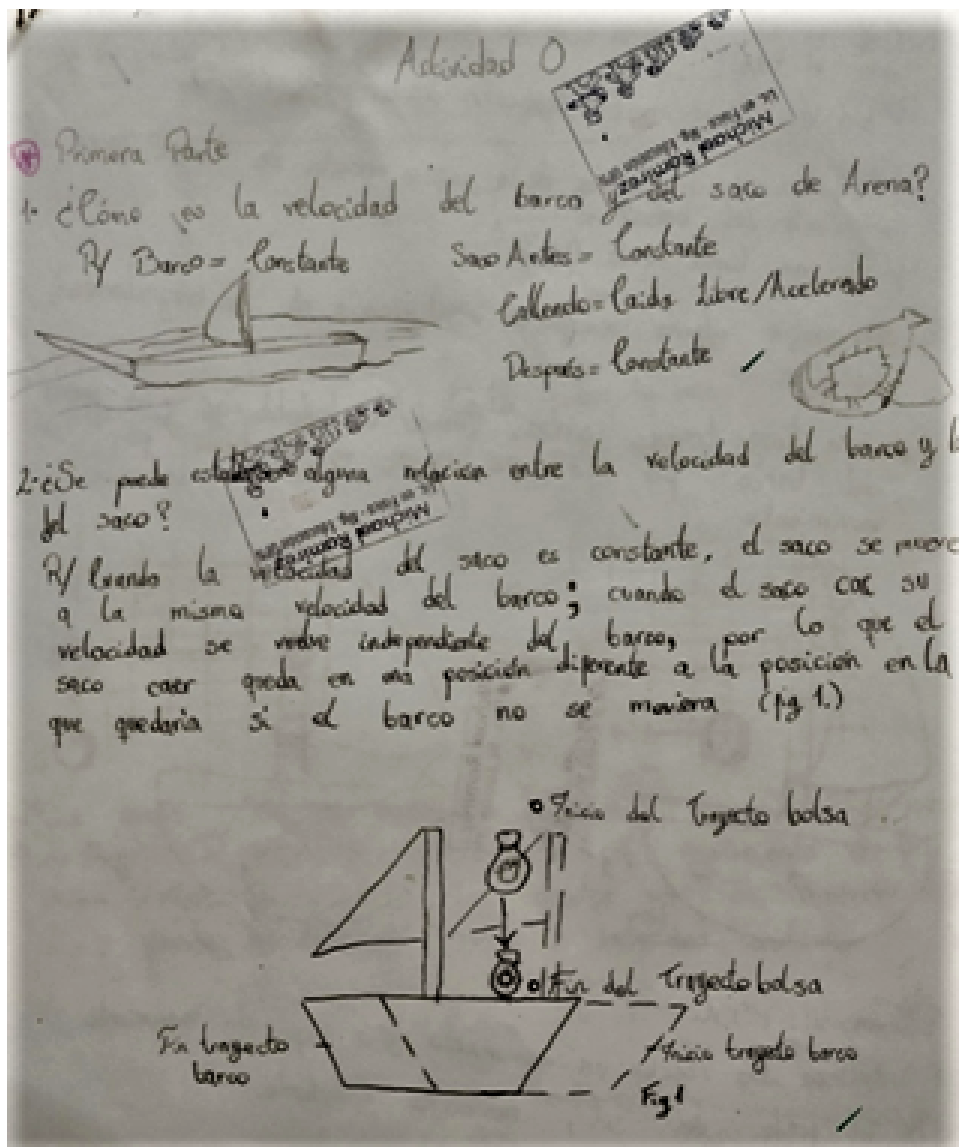 Actividad 0
Primera Parte
1- ¿Cómo es la velocidad del barco y del saco de Arena?
R/ Barco = Constante Saco Antes = Constante
Callendo = Caida Libre/Acelerado
Después = Constante
Michael Ramirez
2- ¿Se puede establecer alguna relación entre la velocidad del barco y l
del saco?
Michael Ramirez
R/ Cuando la velocidad del saco es constante, el saco se mueve
a la misma velocidad del barco; cuando el saco cae su
velocidad se vuelve independiente del barco, por lo que el
saco caer queda en una posición diferente a la posición en la
que quedaria si el barco no se moviera (fig 1.)
Inicio del Trayecto bolsa
Fin del Trayecto bolsa
Fin trayecto
barco
Inicio trayecto barco
Fig 1